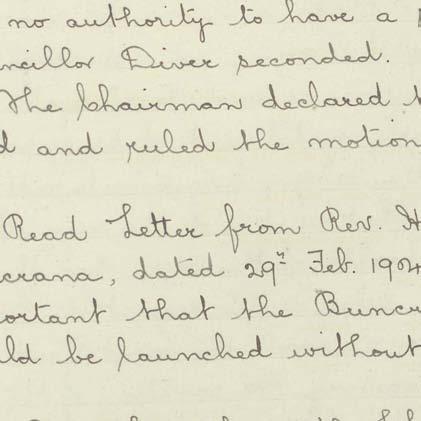 no authority to have a
ncillor Diver seconded.
The Chairman declared
d and ruled the motion
Read Letter from Rev. H
crana, dated 29th Feb. 1904
ortant that the Buncr
ld be launched without